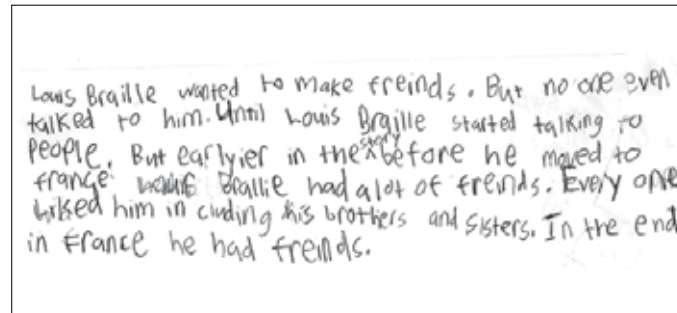 Louis Braille wanted to make freinds. But no one even
talked to him. Until Louis Braille started talking to
People. But earlyier in the story before he moved to
france Louis Brallie had alot of freinds. Every one
liked him in cluding his brothers and sisters. In the end
in France he had freinds.